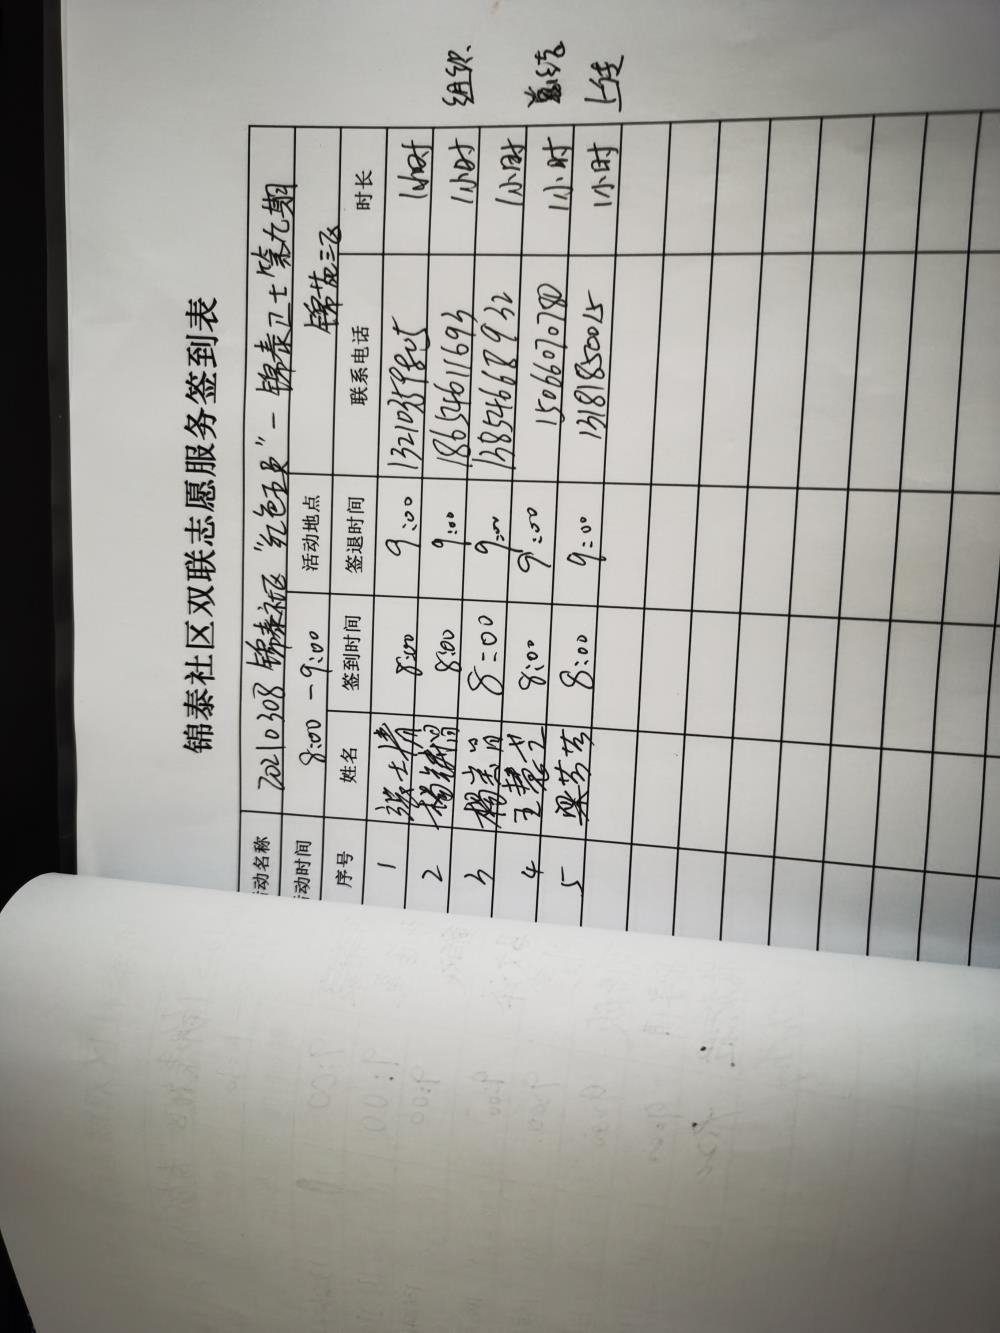 锦泰社区双联志愿服务签到表
动名称 20210308 锦泰社区“红色” — 锦泰卫士第九期
动时间 8:00 — 9:00 活动地点 锦苑三区
序号 姓名 签到时间 签退时间 联系电话 时长
1 8:00 9:00 1小时
2 8:00 9:00 18654611693 1小时 组织
3 8:00 9:00 13854668932 1小时
4 王慧 8:00 9:00 15066070780 1小时 总结
5 梁芳芳 8:00 9:00 13181850015 1小时 上传